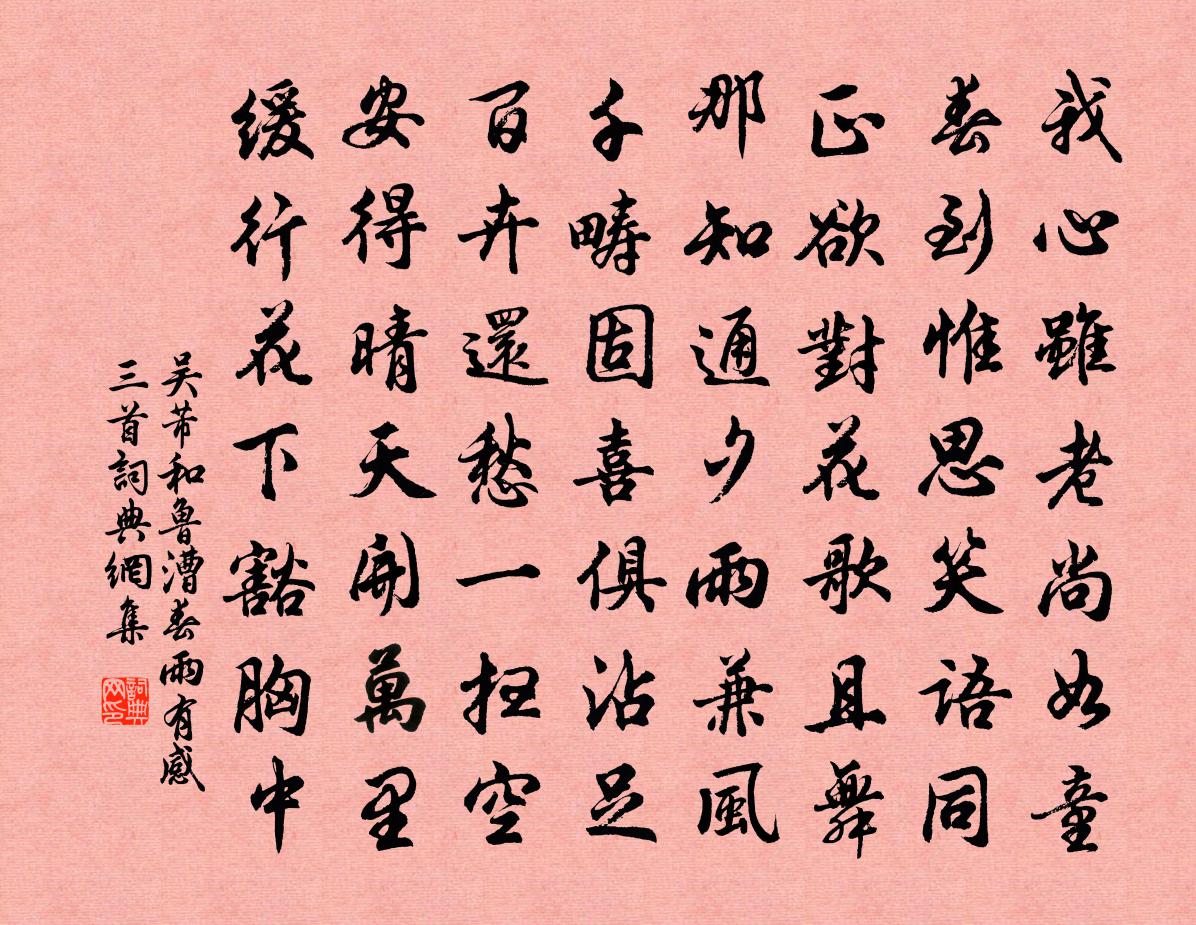 我心雖老尚如童
春到惟思笑語同
正欲對花歌且舞
那知通夕雨兼風
千疇固喜俱沾足
百卉還愁一扫空
安得晴天開萬里
缓行花下豁胸中
吴芾和魯漕春雨有感
三首詞典網集
詞典网印